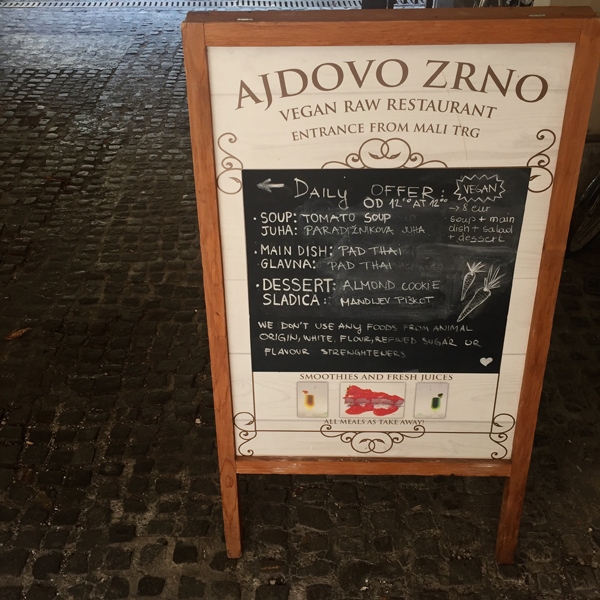 AJDOVO ZRNO
VEGAN RAW RESTAURANT
ENTRANCE FROM MALI TRG
← DAILY OFFER:
OD 12⁰⁰ AT 12⁰⁰
VEGAN
→ 8 eur
soup + main
dish + salad
+ dessert
• SOUP: TOMATO SOUP
JUHA: PARADIŽNIKOVA JUHA
• MAIN DISH: PAD THAI
GLAVNA: PAD THAI
• DESSERT: ALMOND COOKIE
SLADICA: MANDLJEV PIŠKOT
WE DON'T USE ANY FOODS FROM ANIMAL
ORIGIN, WHITE FLOUR, REFINED SUGAR OR
FLAVOUR STRENGHTENERS
SMOOTHIES AND FRESH JUICES
ALL MEALS AS TAKE AWAY!